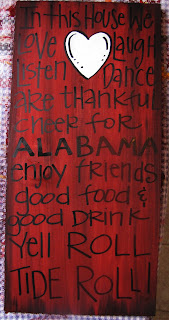 In this House We
Love Laugh
Listen Dance
are thankful
cheer for
ALABAMA
enjoy friends
good food &
good DRINK
Yell ROLL
TIDE ROLL!